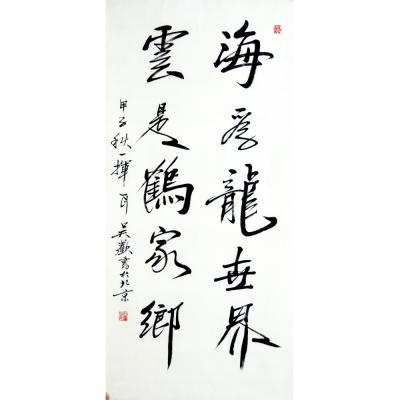 海為龍世界
雲是鶴家鄉
秋一揮 吳歡書於北京